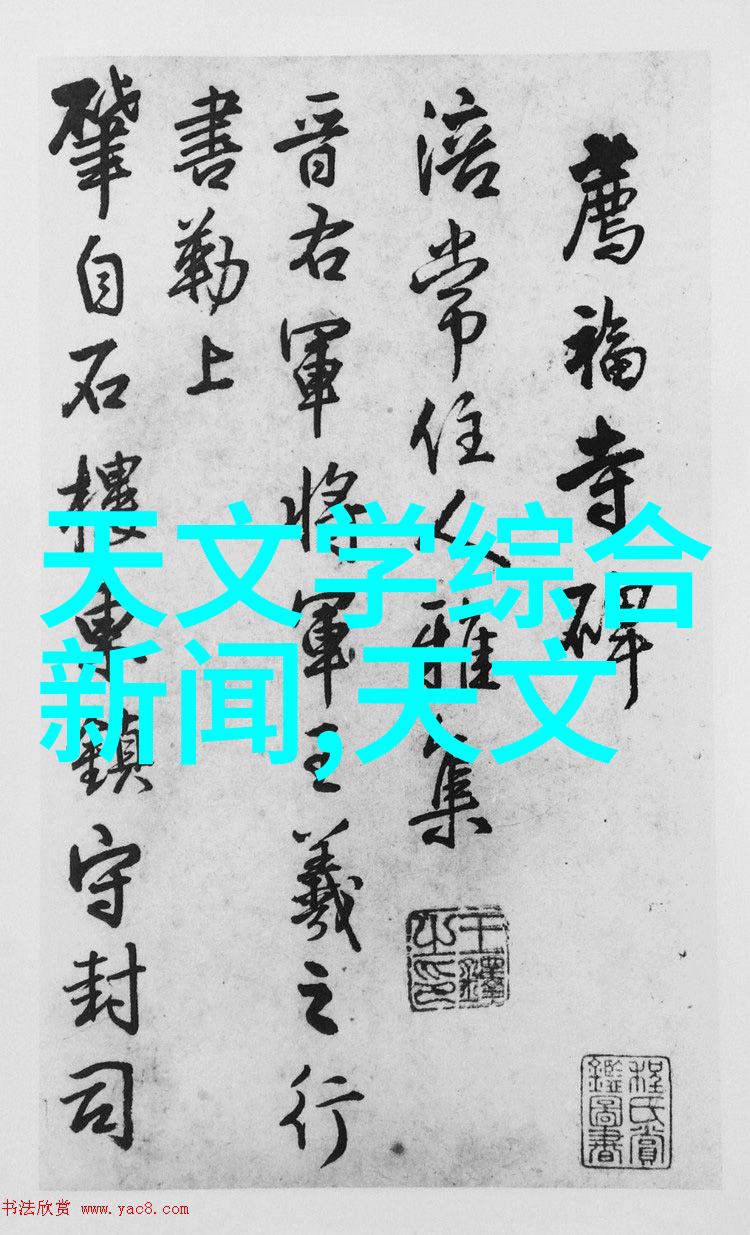 薦福寺碑
涪常住雅集
晋右軍將軍王羲之行
書勒上
肇自石樓東鎮守封司
王鐸之印
程氏賞鑑圖書
天文学综合
新闻,天文
书法欣赏 www.yac8.com